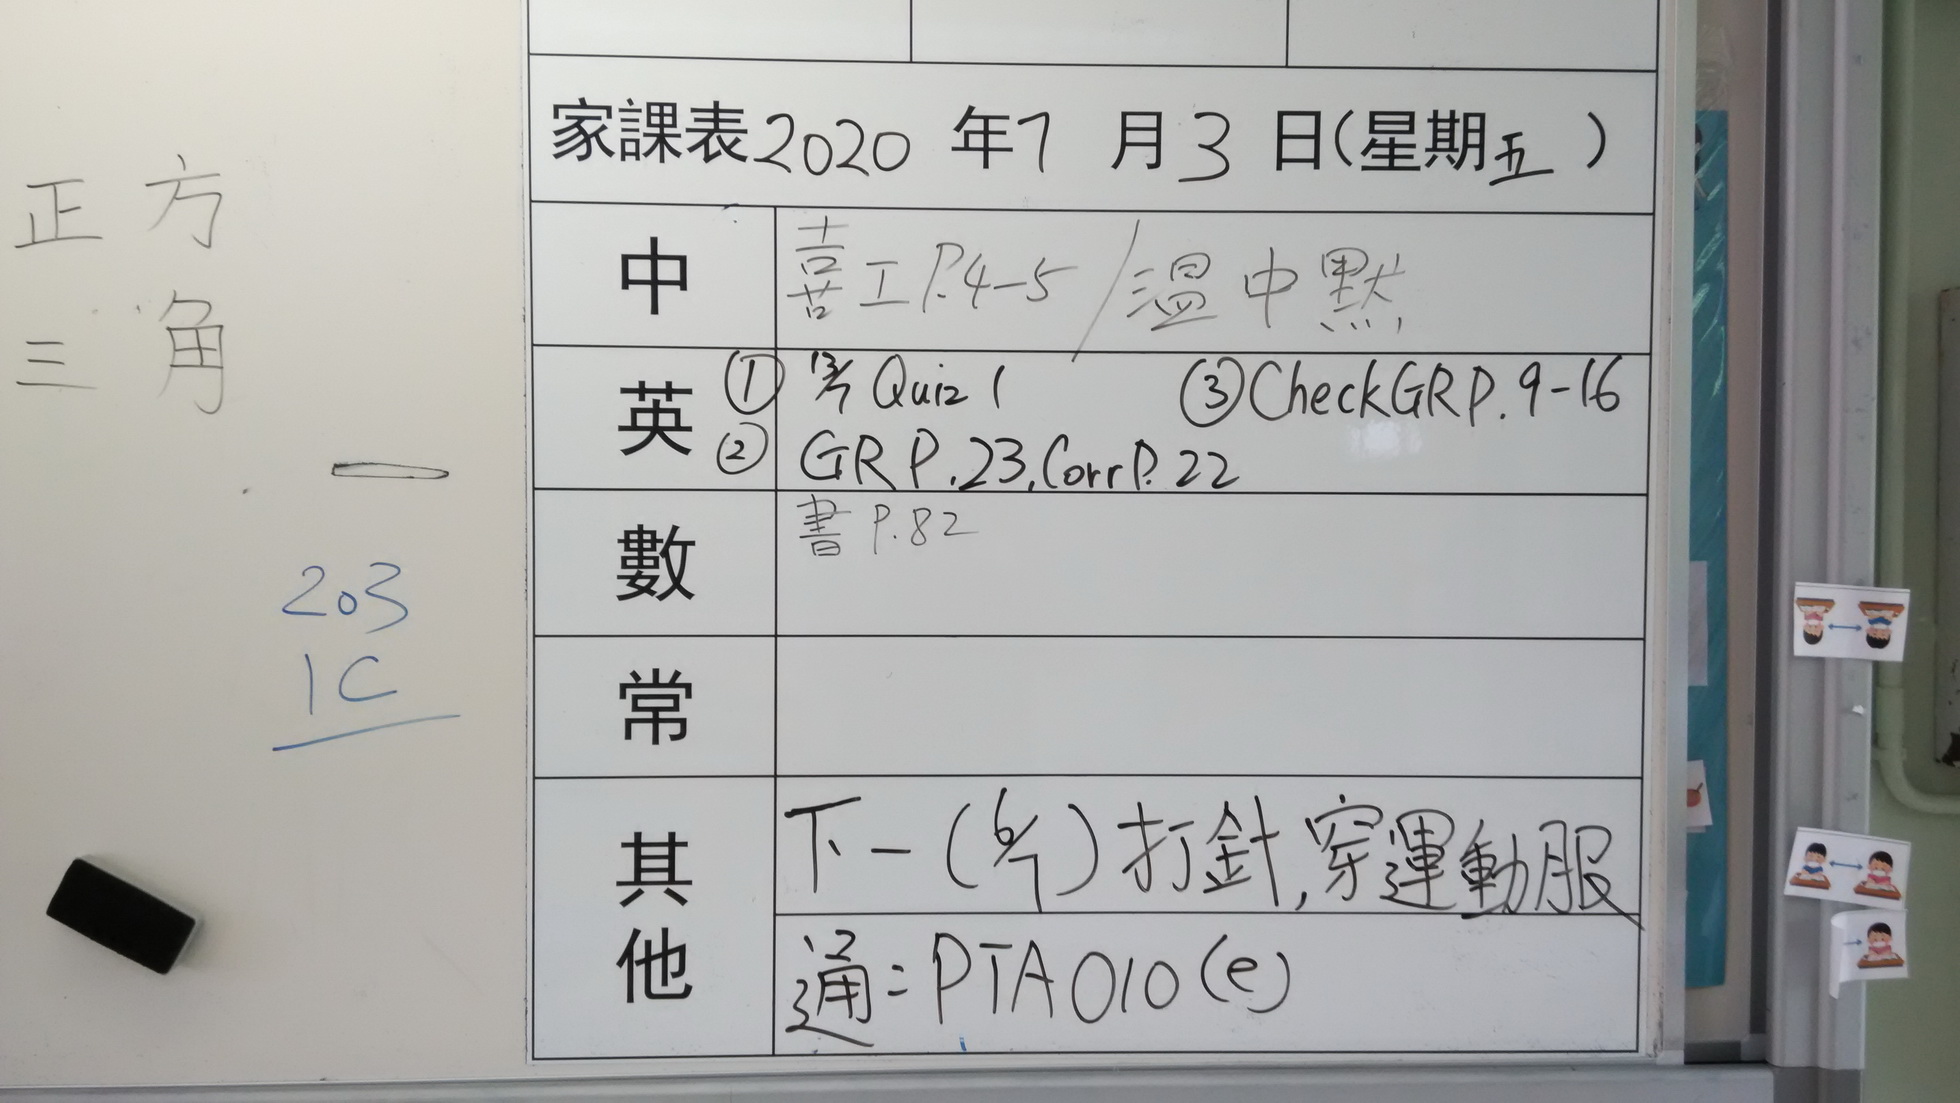 正方
三角
203
1C
家課表2020年7月3日(星期五)
中
喜工P.4-5/溫中默
英
① 13/7 Quiz 1
③CheckGRP.9-16
② GRP.23,CorrP.22
數
書P.82
常
其他
下一(6/7)打針,穿運動服
通:PTA010(e)